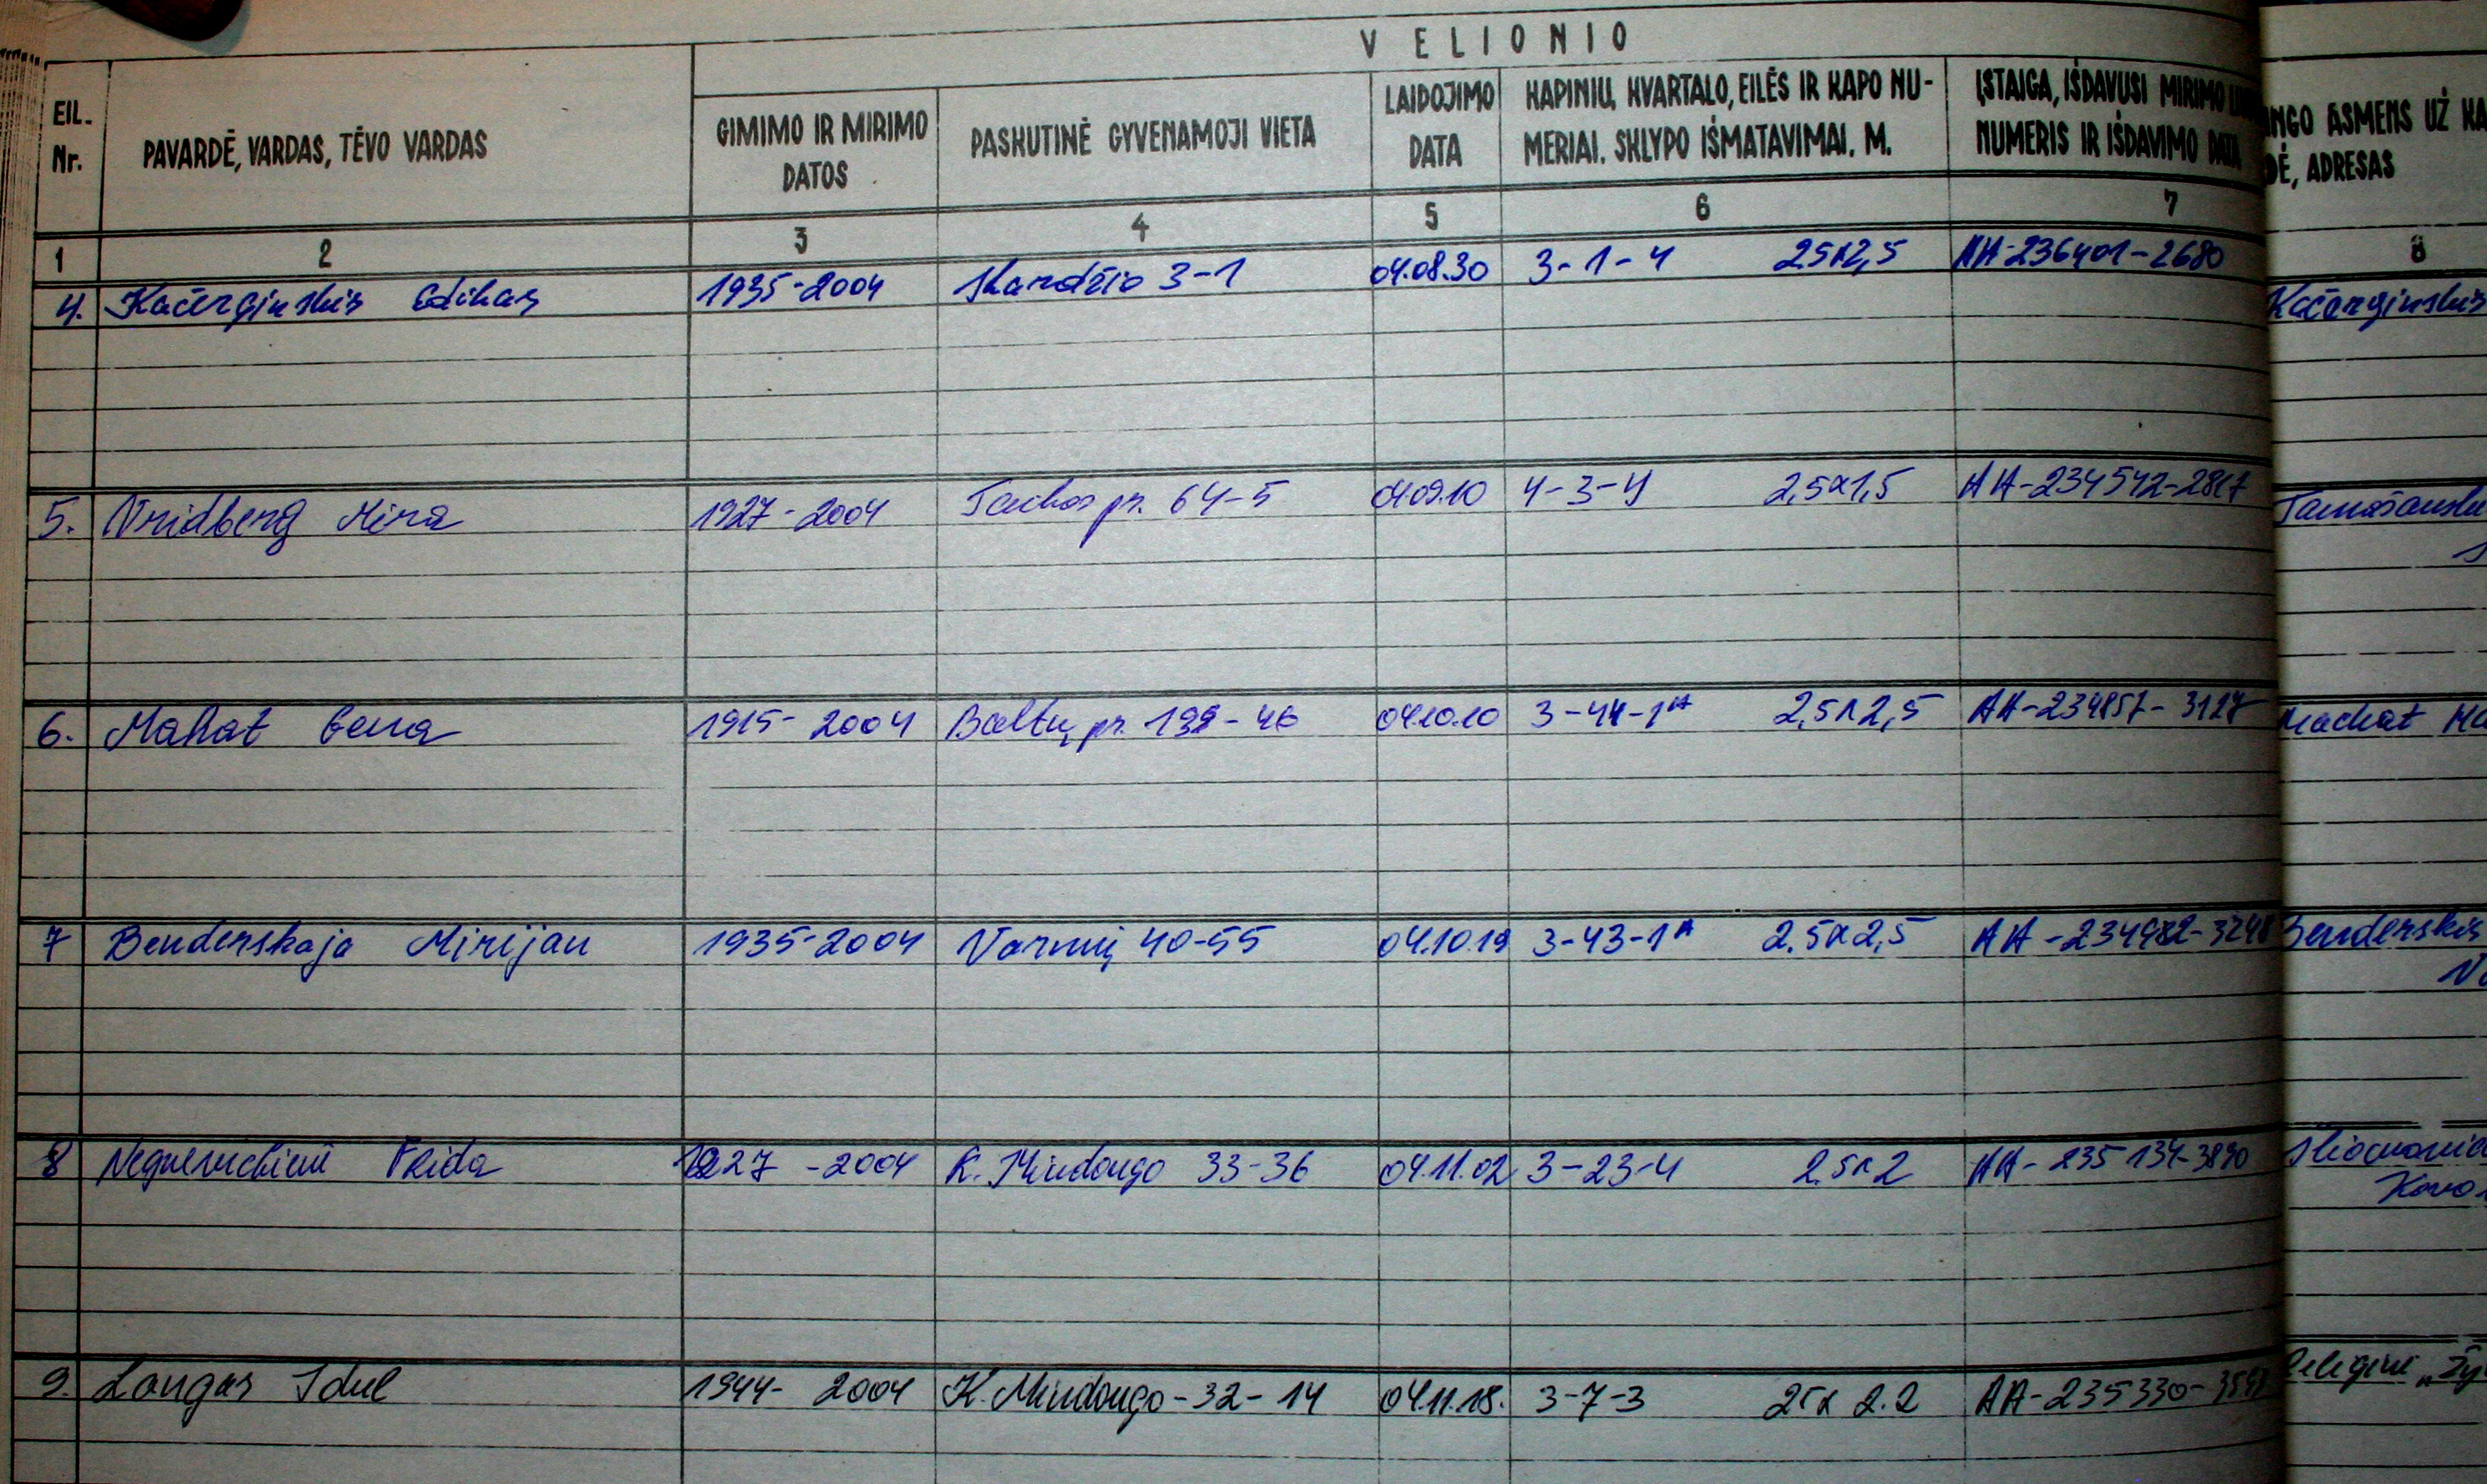 VELIONIO
EIL. Nr.
PAVARDĖ, VARDAS, TĖVO VARDAS
GIMIMO IR MIRIMO DATOS
PASKUTINĖ GYVENAMOJI VIETA
LAIDOJIMO DATA
KAPINIŲ, KVARTALO, EILĖS IR KAPO NU-
MERIAI. SKLYPO IŠMATAVIMAI. M.
ĮSTAIGA, IŠDAVUSI MIRIMO
NUMERIS IR IŠDAVIMO DATA
INGO ASMENS UŽ KA
DĖ, ADRESAS
1 2 3 4 5 6 7 8
4. Kačerginskis Edikas 1935-2004 Skardžio 3-1 04.08.30 3-1-4 25x2,5 AA-236401-2680 Kačerginskis
5. Vridberg Mira 1927-2004 pr. 64-5 04.09.10 4-3-4 2,5x1,5 AA-234542-
6. Mahat Gena 1915-2004 Baltų pr. 04.10.10 3-44-1A 2,5x2,5 AA-234857-3127 Machat
7 Benderskaja Mirijan 1935-2004 Varnių 40-55 04.10.19 3-43-1A 2.5x2,5 AA-234982-3248 Benderskis
8 Frida 1927-2004 K. Mindaugo 33-36 04.11.02 3-23-4 2.5x2 AA-235134-
9. Langas Idel 1944-2004 K. Mindaugo-32-14 04.11.18. 3-7-3 25x2.2 AA-235330-